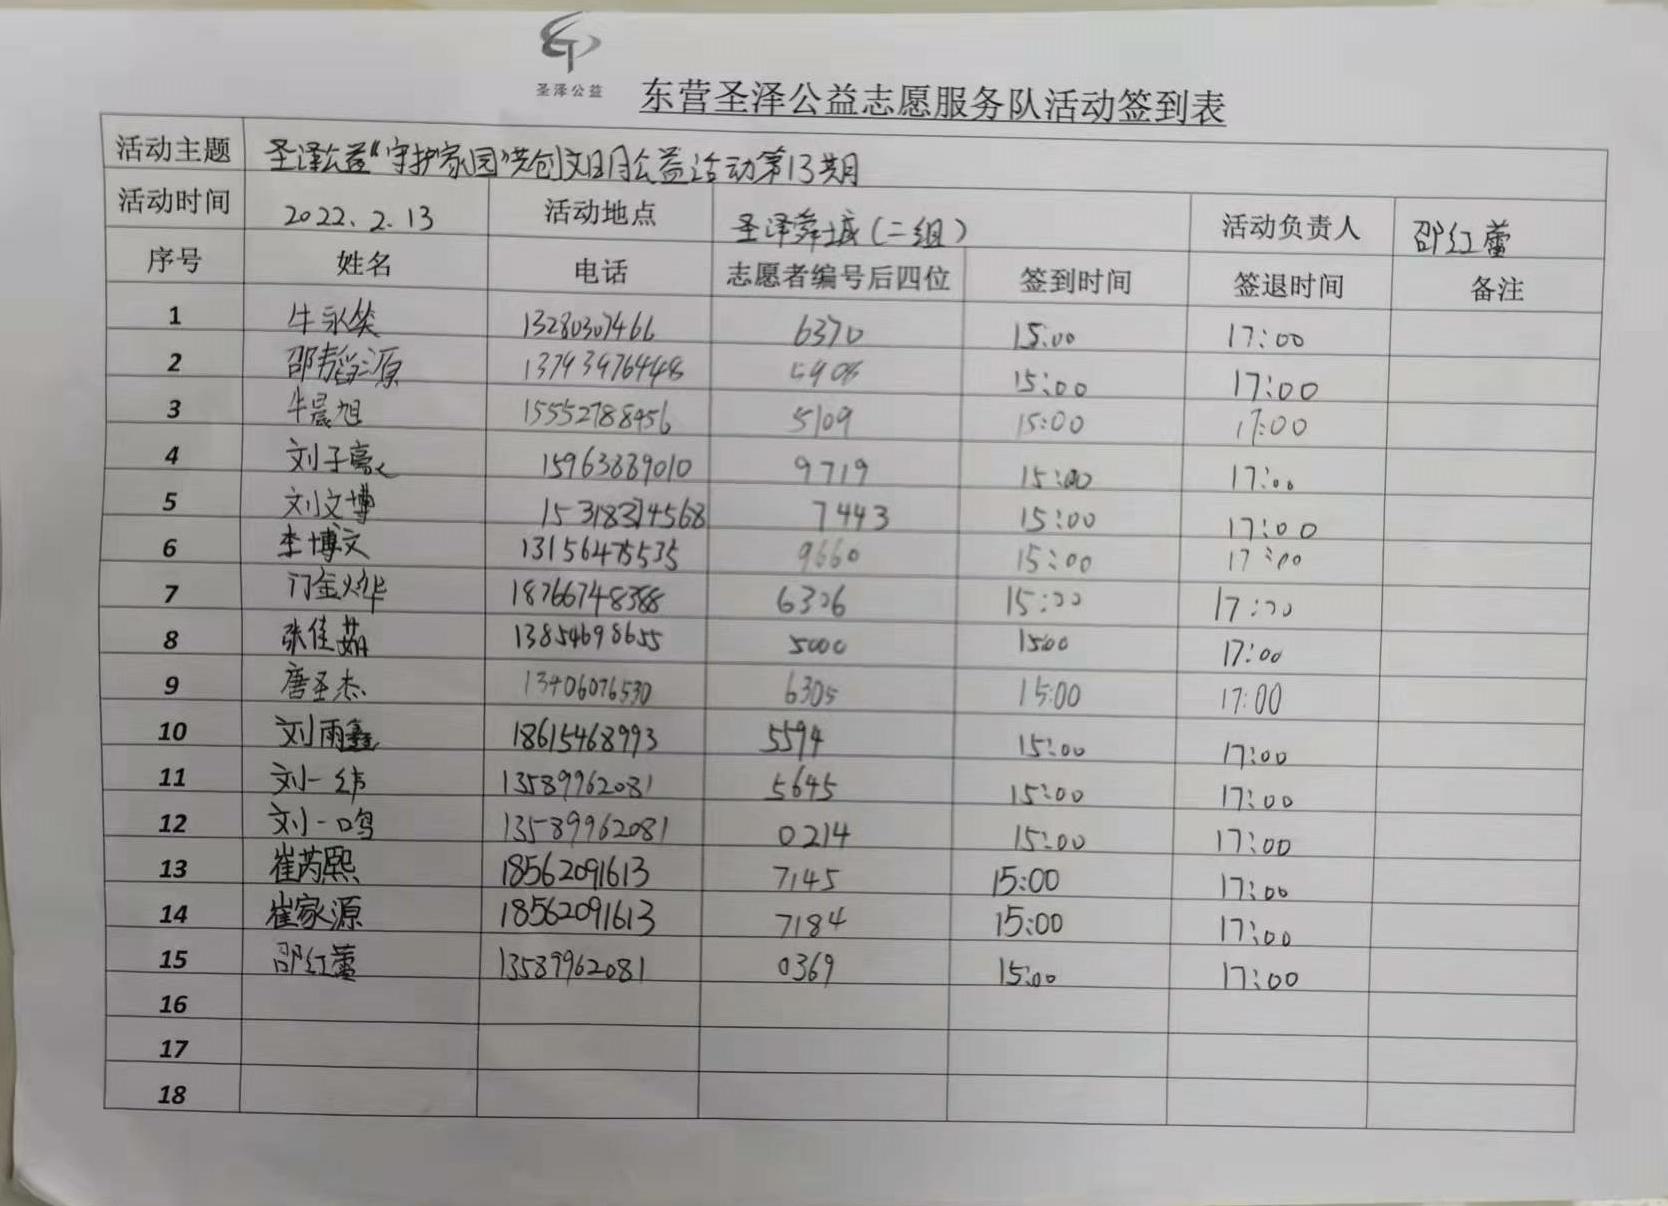 圣泽公益
东营圣泽公益志愿服务队活动签到表
活动主题 圣泽公益“守护家园”共创文明公益活动第13期
活动时间 2022.2.13 活动地点 圣泽舜城(二组) 活动负责人 邵红蕾
序号 姓名 电话 志愿者编号后四位 签到时间 签退时间 备注
1 牛永笑 13280307466 6370 15:00 17:00
2 邵韬源 13793976448 5908 15:00 17:00
3 牛晨旭 15552788456 5109 15:00 17:00
4 刘子豪 15963889010 9719 15:00 17:00
5 刘文博 7443 15:00 17:00
6 李博文 13156475535 9660 15:00 17:00
7 门金烨 18766748388 6306 15:00 17:00
8 张佳茹 13854698655 5000 1500 17:00
9 唐圣杰 13406076530 6305 15:00 17:00
10 刘雨鑫 18615468993 5594 15:00 17:00
11 刘一纬 13589962081 5645 15:00 17:00
12 刘一鸣 13589962081 0214 15:00 17:00
13 崔芮熙 18562091613 7145 15:00 17:00
14 崔家源 18562091613 7184 15:00 17:00
15 邵红蕾 13589962081 0369 15:00 17:00
16
17
18